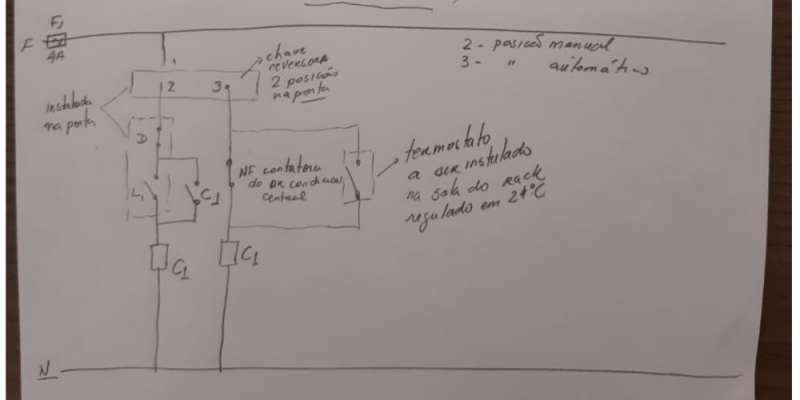 F1
F
4A
1
2
3
chave
reversora
2 posição
na porta
2 - posição manual
3 - " automático
instalada
na porta
D
L1
C1
NF contatora
do ar condicion
central
termostato
a ser instalado
na sala do rack
regulado em 24°C
C1
C1
N